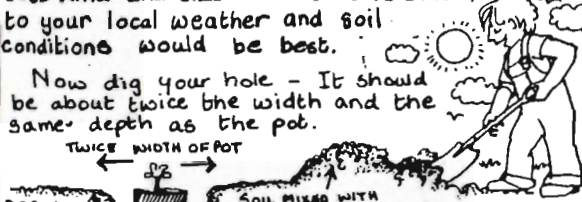 to your local weather and soil
conditions would be best.
Now dig your hole – It should
be about twice the width and the
same depth as the pot.
TWICE WIDTH OF POT
SOIL MIXED WITH